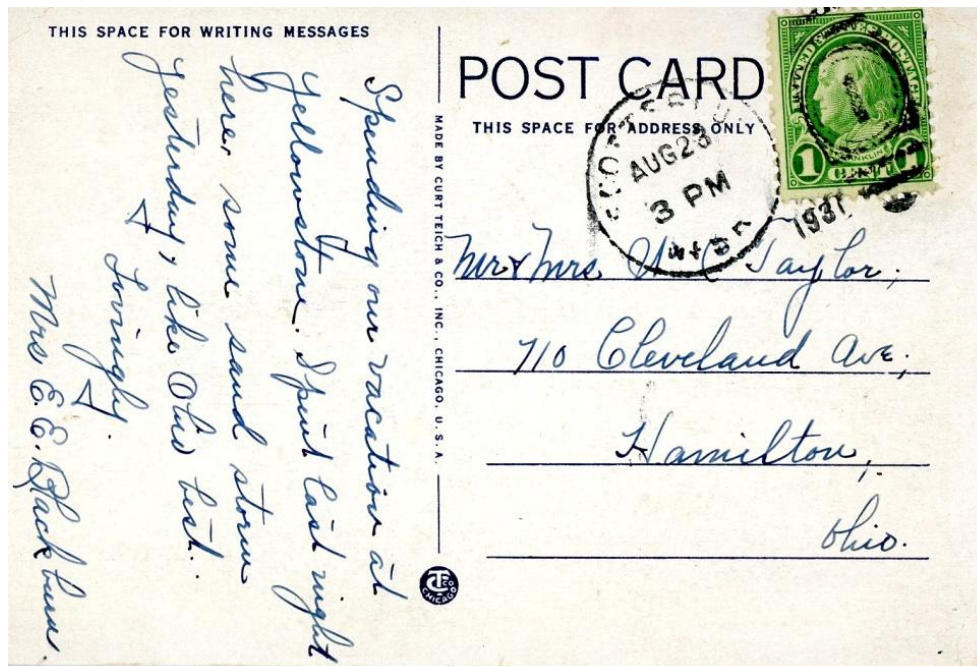 THIS SPACE FOR WRITING MESSAGES
Spending our vacation at
Yellowstone. Spent last night
here, some sand storm
Yesterday, like Ohio best.
Lovingly.
Mrs E.E. Blackburn.
MADE BY CURT TEICH & CO., INC., CHICAGO, U.S.A.
POST CARD
THIS SPACE FOR ADDRESS ONLY
AUG 23
3 PM
1931
UNITED STATES POSTAGE
FRANKLIN
1 CENT 1
Mr & Mrs. W C Taylor,
710 Cleveland Ave,
Hamilton,
Ohio.
CT CO
CHICAGO